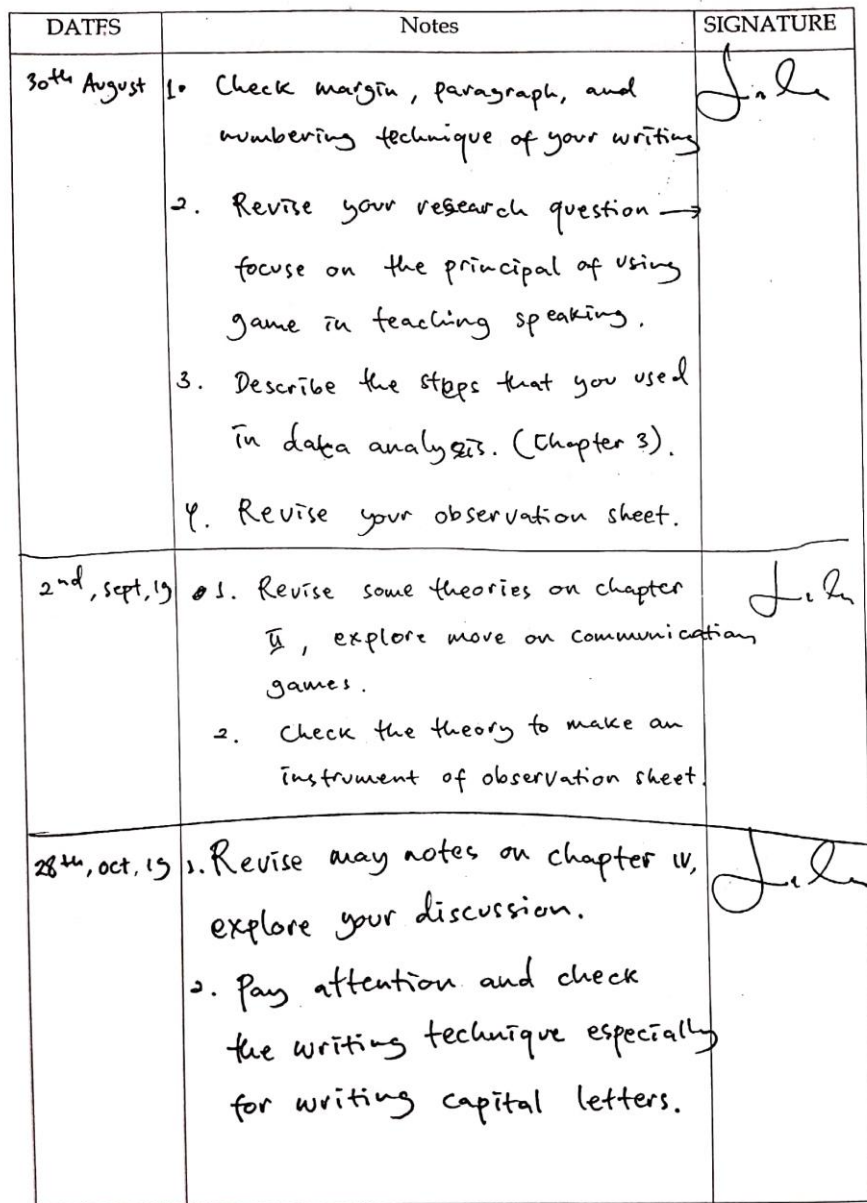 DATES Notes SIGNATURE
30th August 1. Check margin, paragraph, and
numbering technique of your writing
2. Revise your research question →
focuse on the principal of using
game in teaching speaking.
3. Describe the steps that you used
in data analysis. (Chapter 3).
4. Revise your observation sheet.
2nd, sept, 19 1. Revise some theories on chapter
II, explore more on communication
games.
2. Check the theory to make an
instrument of observation sheet.
28th, oct, 19 1. Revise may notes on chapter IV,
explore your discussion.
2. Pay attention and check
the writing technique especially
for writing capital letters.